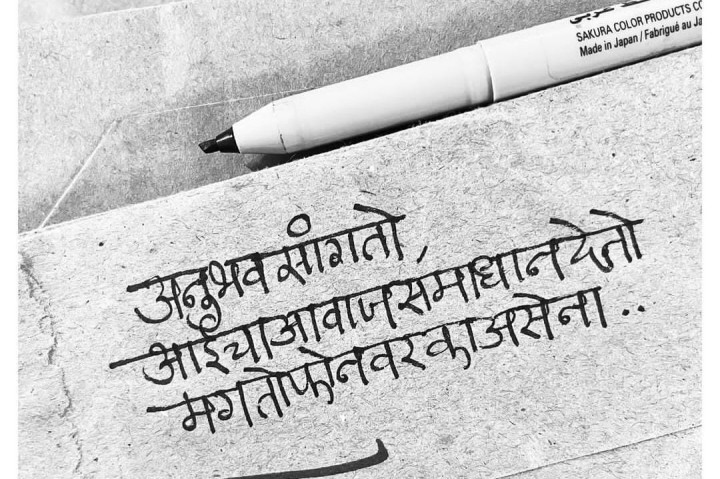 SAKURA COLOR PRODUCTS CO
Made in Japan / Fabriqué au Ja
अनुभव सांगतो,
आईचा आवाज समाधान देतो
मग तो फोनवर का असेना..